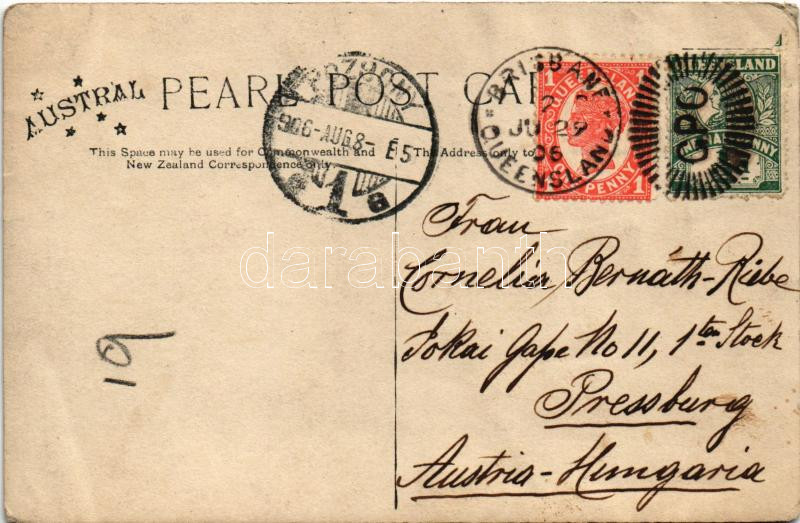 AUSTRAL PEARL POST
This Space may be used for Commonwealth and
New Zealand Correspondence only.
The Address only to
POZSONY
906-AUG8- E5
BRISBANE
JU 29
06
QUEENSLAND
1 1
PENNY 1
QUEENSLAND
PENNY
GPO
Frau
Cornelia Bernáth-Riebe
Tokai Gaße No 11, 1ten Stock
Pressburg
Austria-Hungaria
19
darabanth